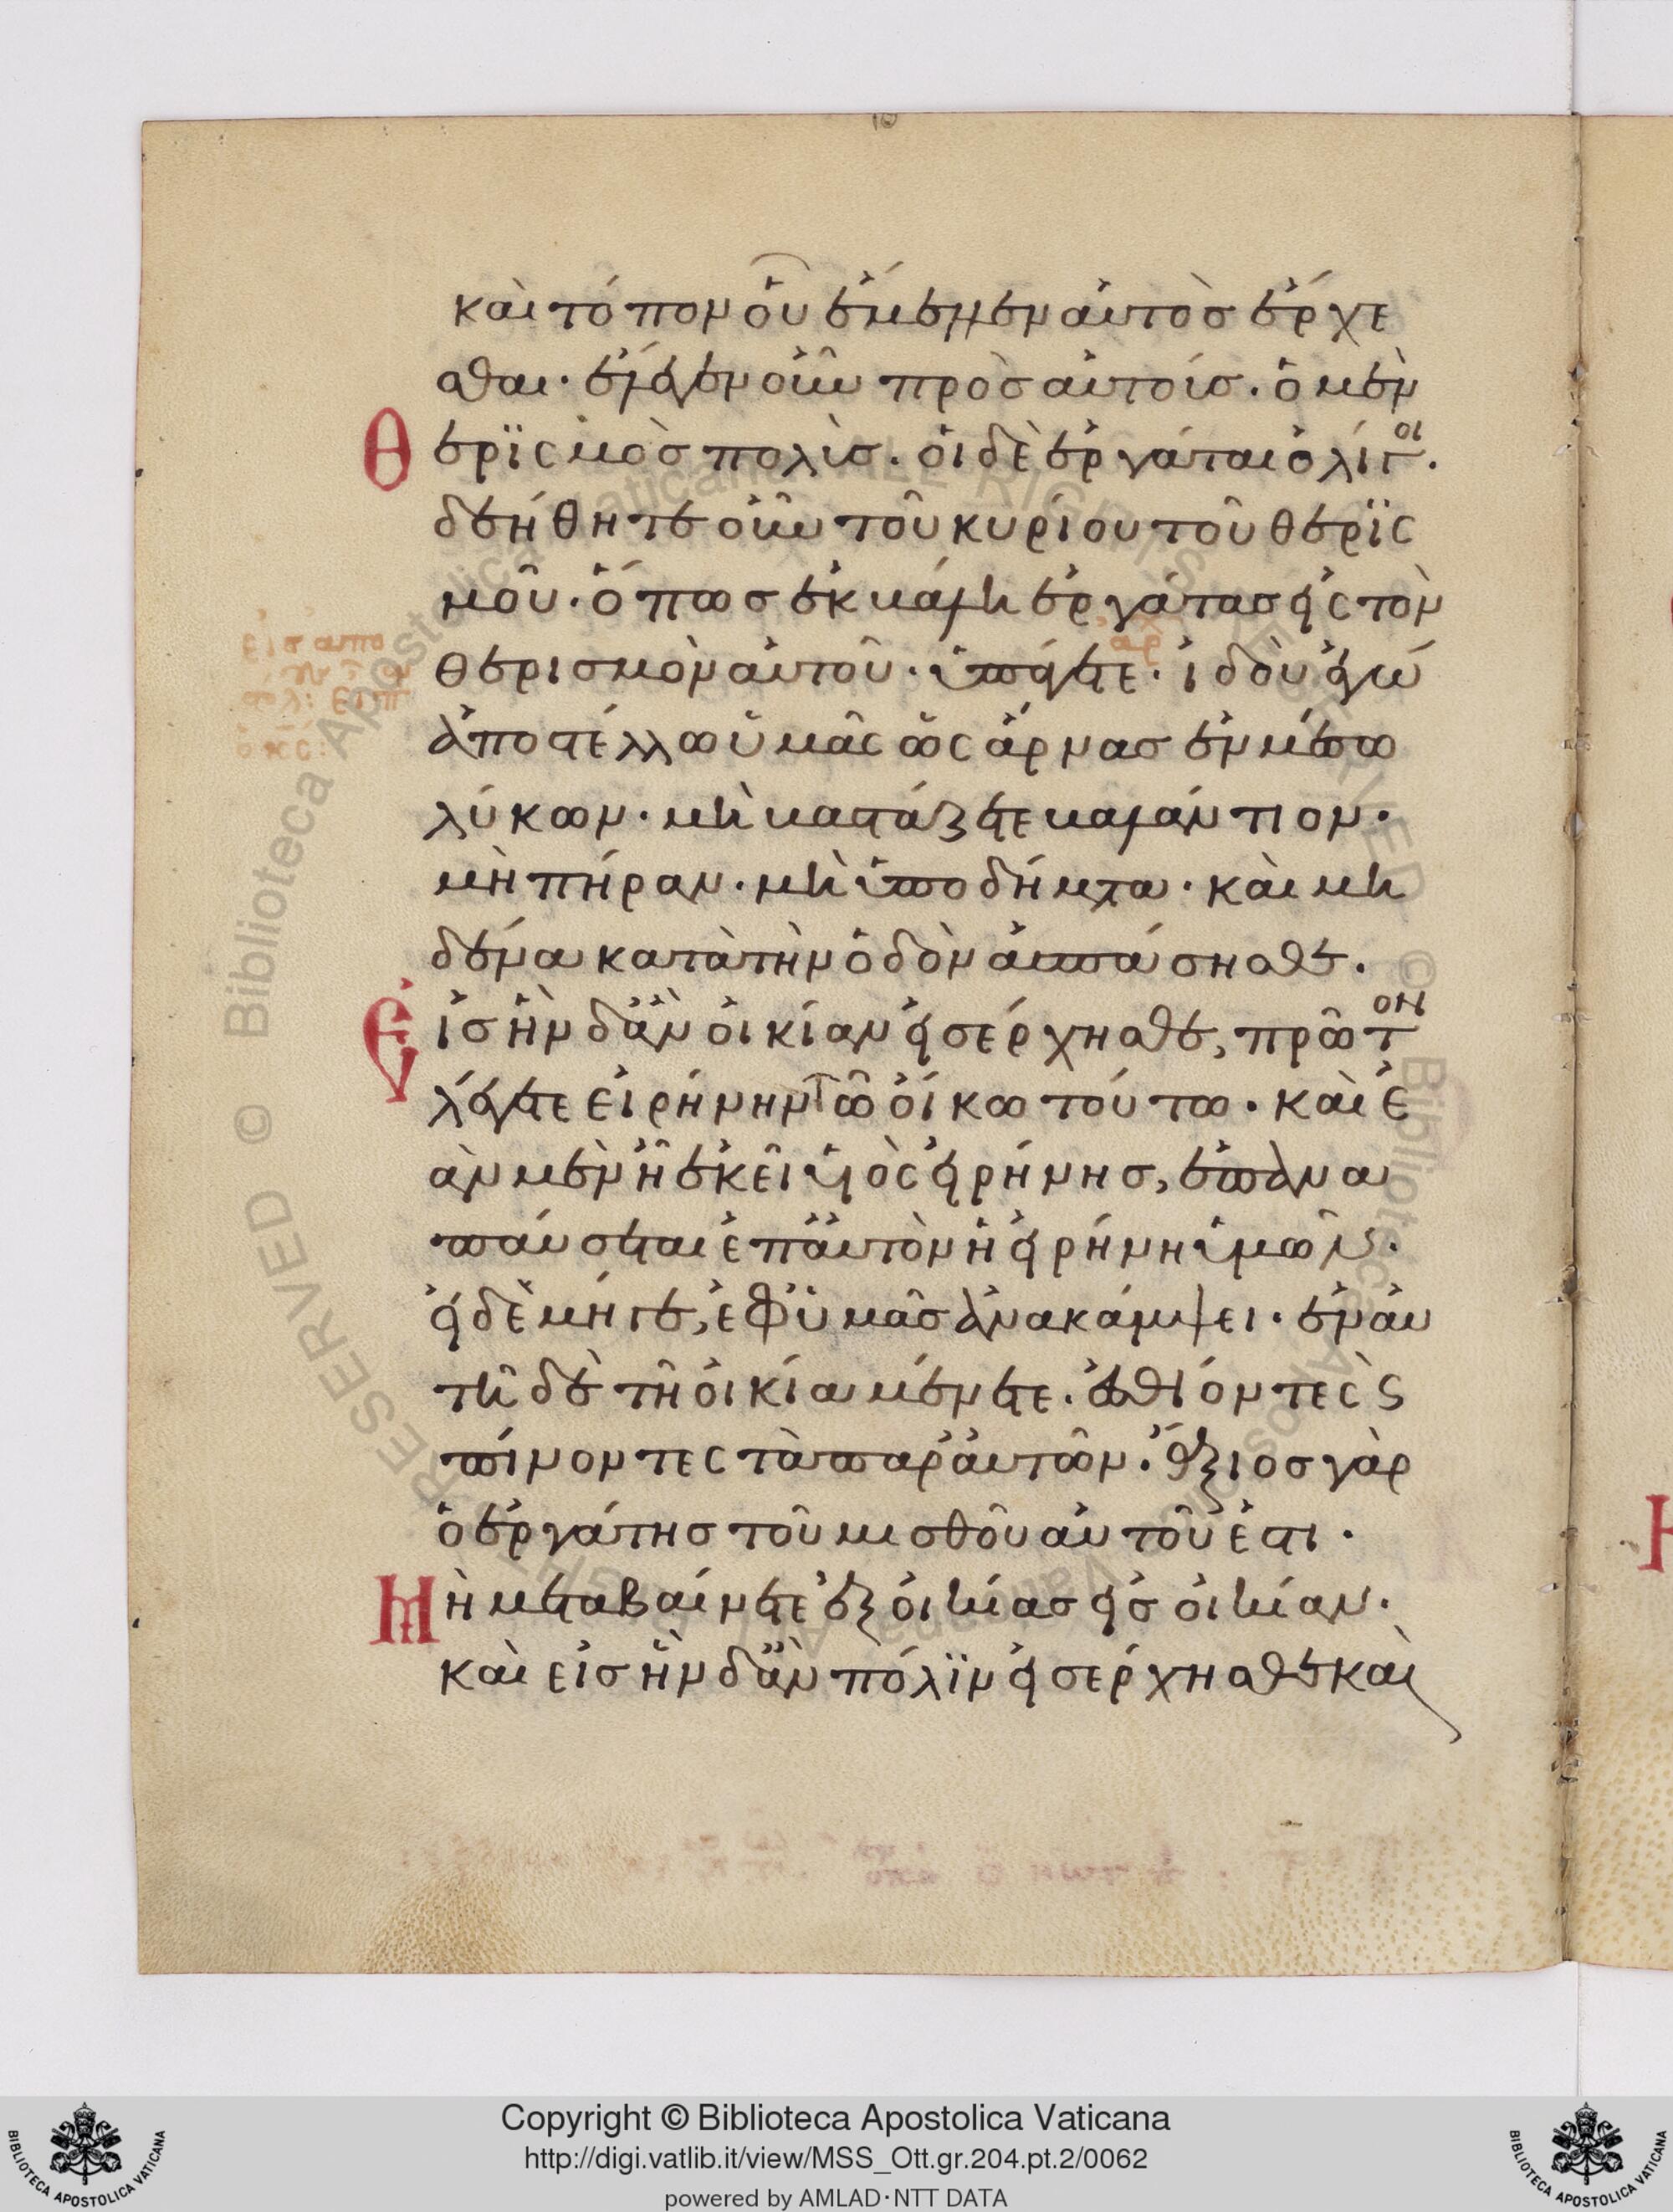 καὶ τόπον οὗ ἔμελλεν αὐτὸς ἔρχε
σθαι· ἔλεγεν οὖν πρὸς αὐτοὺς· ὁ μὲν
θερϊσμὸς πολὺς· οἱ δὲ ἐργάται ὀλίγοι·
δεήθητε οὖν τοῦ κυρίου τοῦ θερϊς
μοῦ· ὅπως ἐκβάλη ἐργάτας εἰς τὸν
θερισμὸν αὐτοῦ· ὑπάγετε· ἰδοὺ ἐγὼ
ἀποστέλλω ὑμᾶς ὡς ἄρνας ἐν μέσω
λύκων· μὴ βαστάζετε βαλάντιον·
μὴ πήραν· μὴ ὑποδήματα· καὶ μη
δένα κατὰ τὴν ὁδὸν ἀσπάσησθε·
Εἰς ἣν δἂν οἰκίαν εἰσέρχησθε, πρῶτον
λέγετε εἰρήνην τῶ οἴκω τούτω· καὶ ἐ
ὰν μὲν ἦ ἐκεῖ υἱὸς εἰρήνης, ἐπανα
παύσεται ἐπ αὐτὸν ἡ εἰρήνη ὑμῶν·
εἰ δὲ μήγε, ἐφ ὑμᾶς ἀνακάμψει· ἐν αὐ
τῆ δὲ τῆ οἰκία μένετε· ἐσθίοντες ϗ
πίνοντες τὰ παρ αὐτῶν· ἄξιος γὰρ
ὁ ἐργάτης τοῦ μισθοῦ αὐτοῦ ἐστι·
Μὴ μεταβαίνετε ἐξ οἰκίας εἰς οἰκίαν·
καὶ εἰς ἣν δἂν πόλϊν εἰσέρχησθε καὶ
Copyright © Biblioteca Apostolica Vaticana
http://digi.vatlib.it/view/MSS_Ott.gr.204.pt.2/0062
powered by AMLAD·NTT DATA